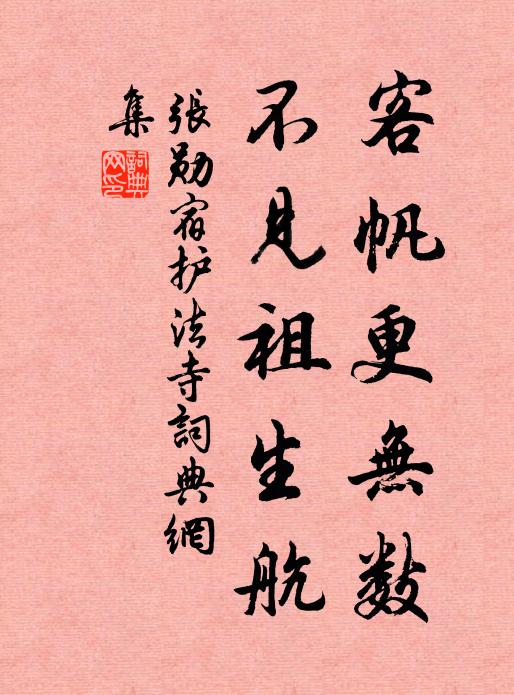 客帆更無数
不見祖生航
張勛宿护法寺詞典網
集
詞典网印